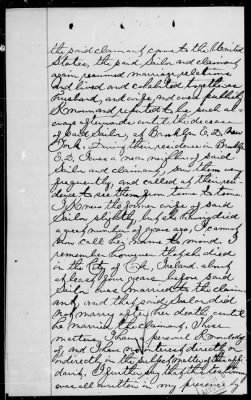 the said claimant came to the United
States, the said Sailor and claimant
again resumed marriage relations
and lived and cohabited together as
husband and wife, and were publicly
known and reputed to be such al-
ways afterwards until the decease
of said Sailor, of Brooklyn E.D., New
York. During their residence in Brooklyn
E.D. I was a near neighbor of said
Sailor and claimant, saw them very
frequently, and called at their resi-
dence to see them from time to time.
I knew the former wife of said
Sailor slightly, but she having died
a great number of years ago, I cannot
now call her name to mind. I
remember however that she died
in the City of Cork, Ireland, about
at least five years before said
Sailor was married to the claim-
ant, and that said Sailor did
not marry after her death, until
he married the claimant. These
matters I have personal knowledge
of, and I have no interest directly or
indirectly in the subject matter of this affi-
davit. I further say that this testimony
was all written in my presence by